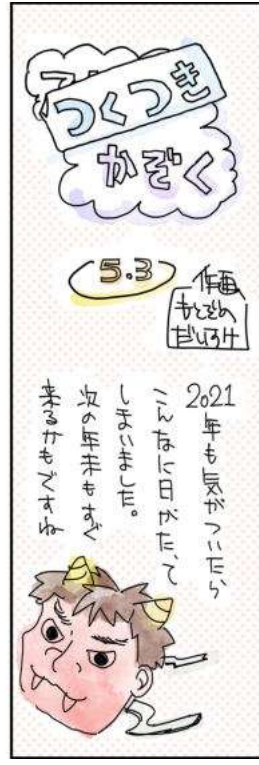 つくつき
かぞく
5.3
作画
もとぞの
だいすけ
2021年も気がついたら
こんなに日がたって
しまいました。
次の年末もすぐ
来るかもですね